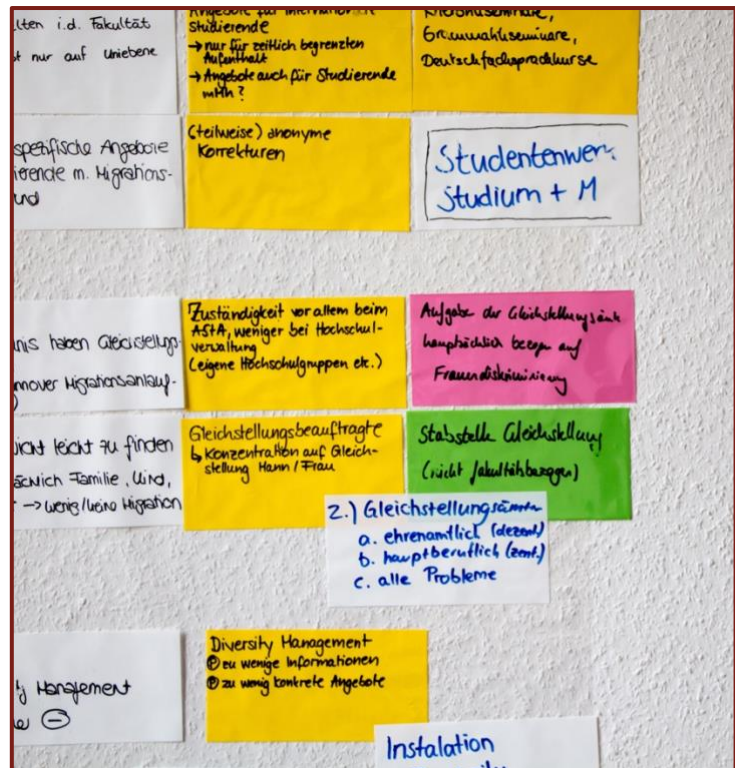 lten i.d. Fakultät
nur auf Uniebene
Angebote für internationale
Studierende
→ nur für zeitlich begrenzten
Aufenthalt
→ Angebote auch für Studierende
mMh?
Grammatikseminare,
Deutschfachsprachkurse
spezifische Angebote
ierende m. Migrations-
und
(teilweise) anonyme
Korrekturen
Studentenwer
Studium + M
nis haben Gleichstellungs-
nnover Migrationsanlauf-
Zuständigkeit vor allem beim
AStA, weniger bei Hochschul-
verwaltung
(eigene Hochschulgruppen etc.)
Aufgabe der Gleichstellungsämt
hauptsächlich bezogen auf
Frauendiskriminierung
nicht leicht zu finden
ächlich Familie, Kind,
→ wenig/keine Migration
Gleichstellungsbeauftragte
↳ Konzentration auf Gleich-
stellung Mann/Frau
Stabstelle Gleichstellung
(nicht fakultätsbezogen)
2.) Gleichstellungsämter
a. ehrenamtlich (dezent.)
b. hauptberuflich (zent.)
c. alle Probleme
Management
⊖
Diversity Management
zu wenige Informationen
zu wenig konkrete Angebote
Instalation